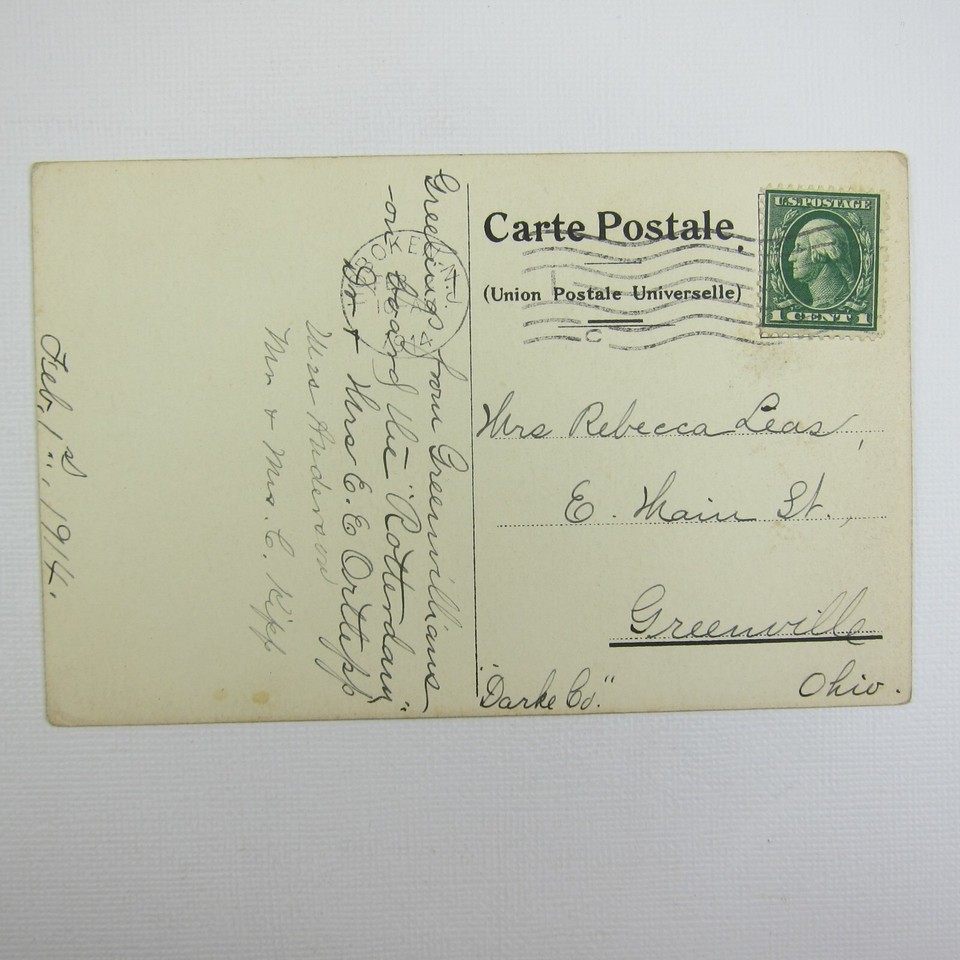 Carte Postale.
(Union Postale Universelle)
U.S. POSTAGE
1 CENT 1
Mrs Rebecca Leas,
E. Main St.,
Greenville
"Darke Co."
Ohio.
Greetings from Greenvillians
on board the "Rotterdam"
Dr & Mrs E. E. Ortlipp
Mrs Anderson
Mr & Mrs. C. Kipp
Feb. 1st, 1914.